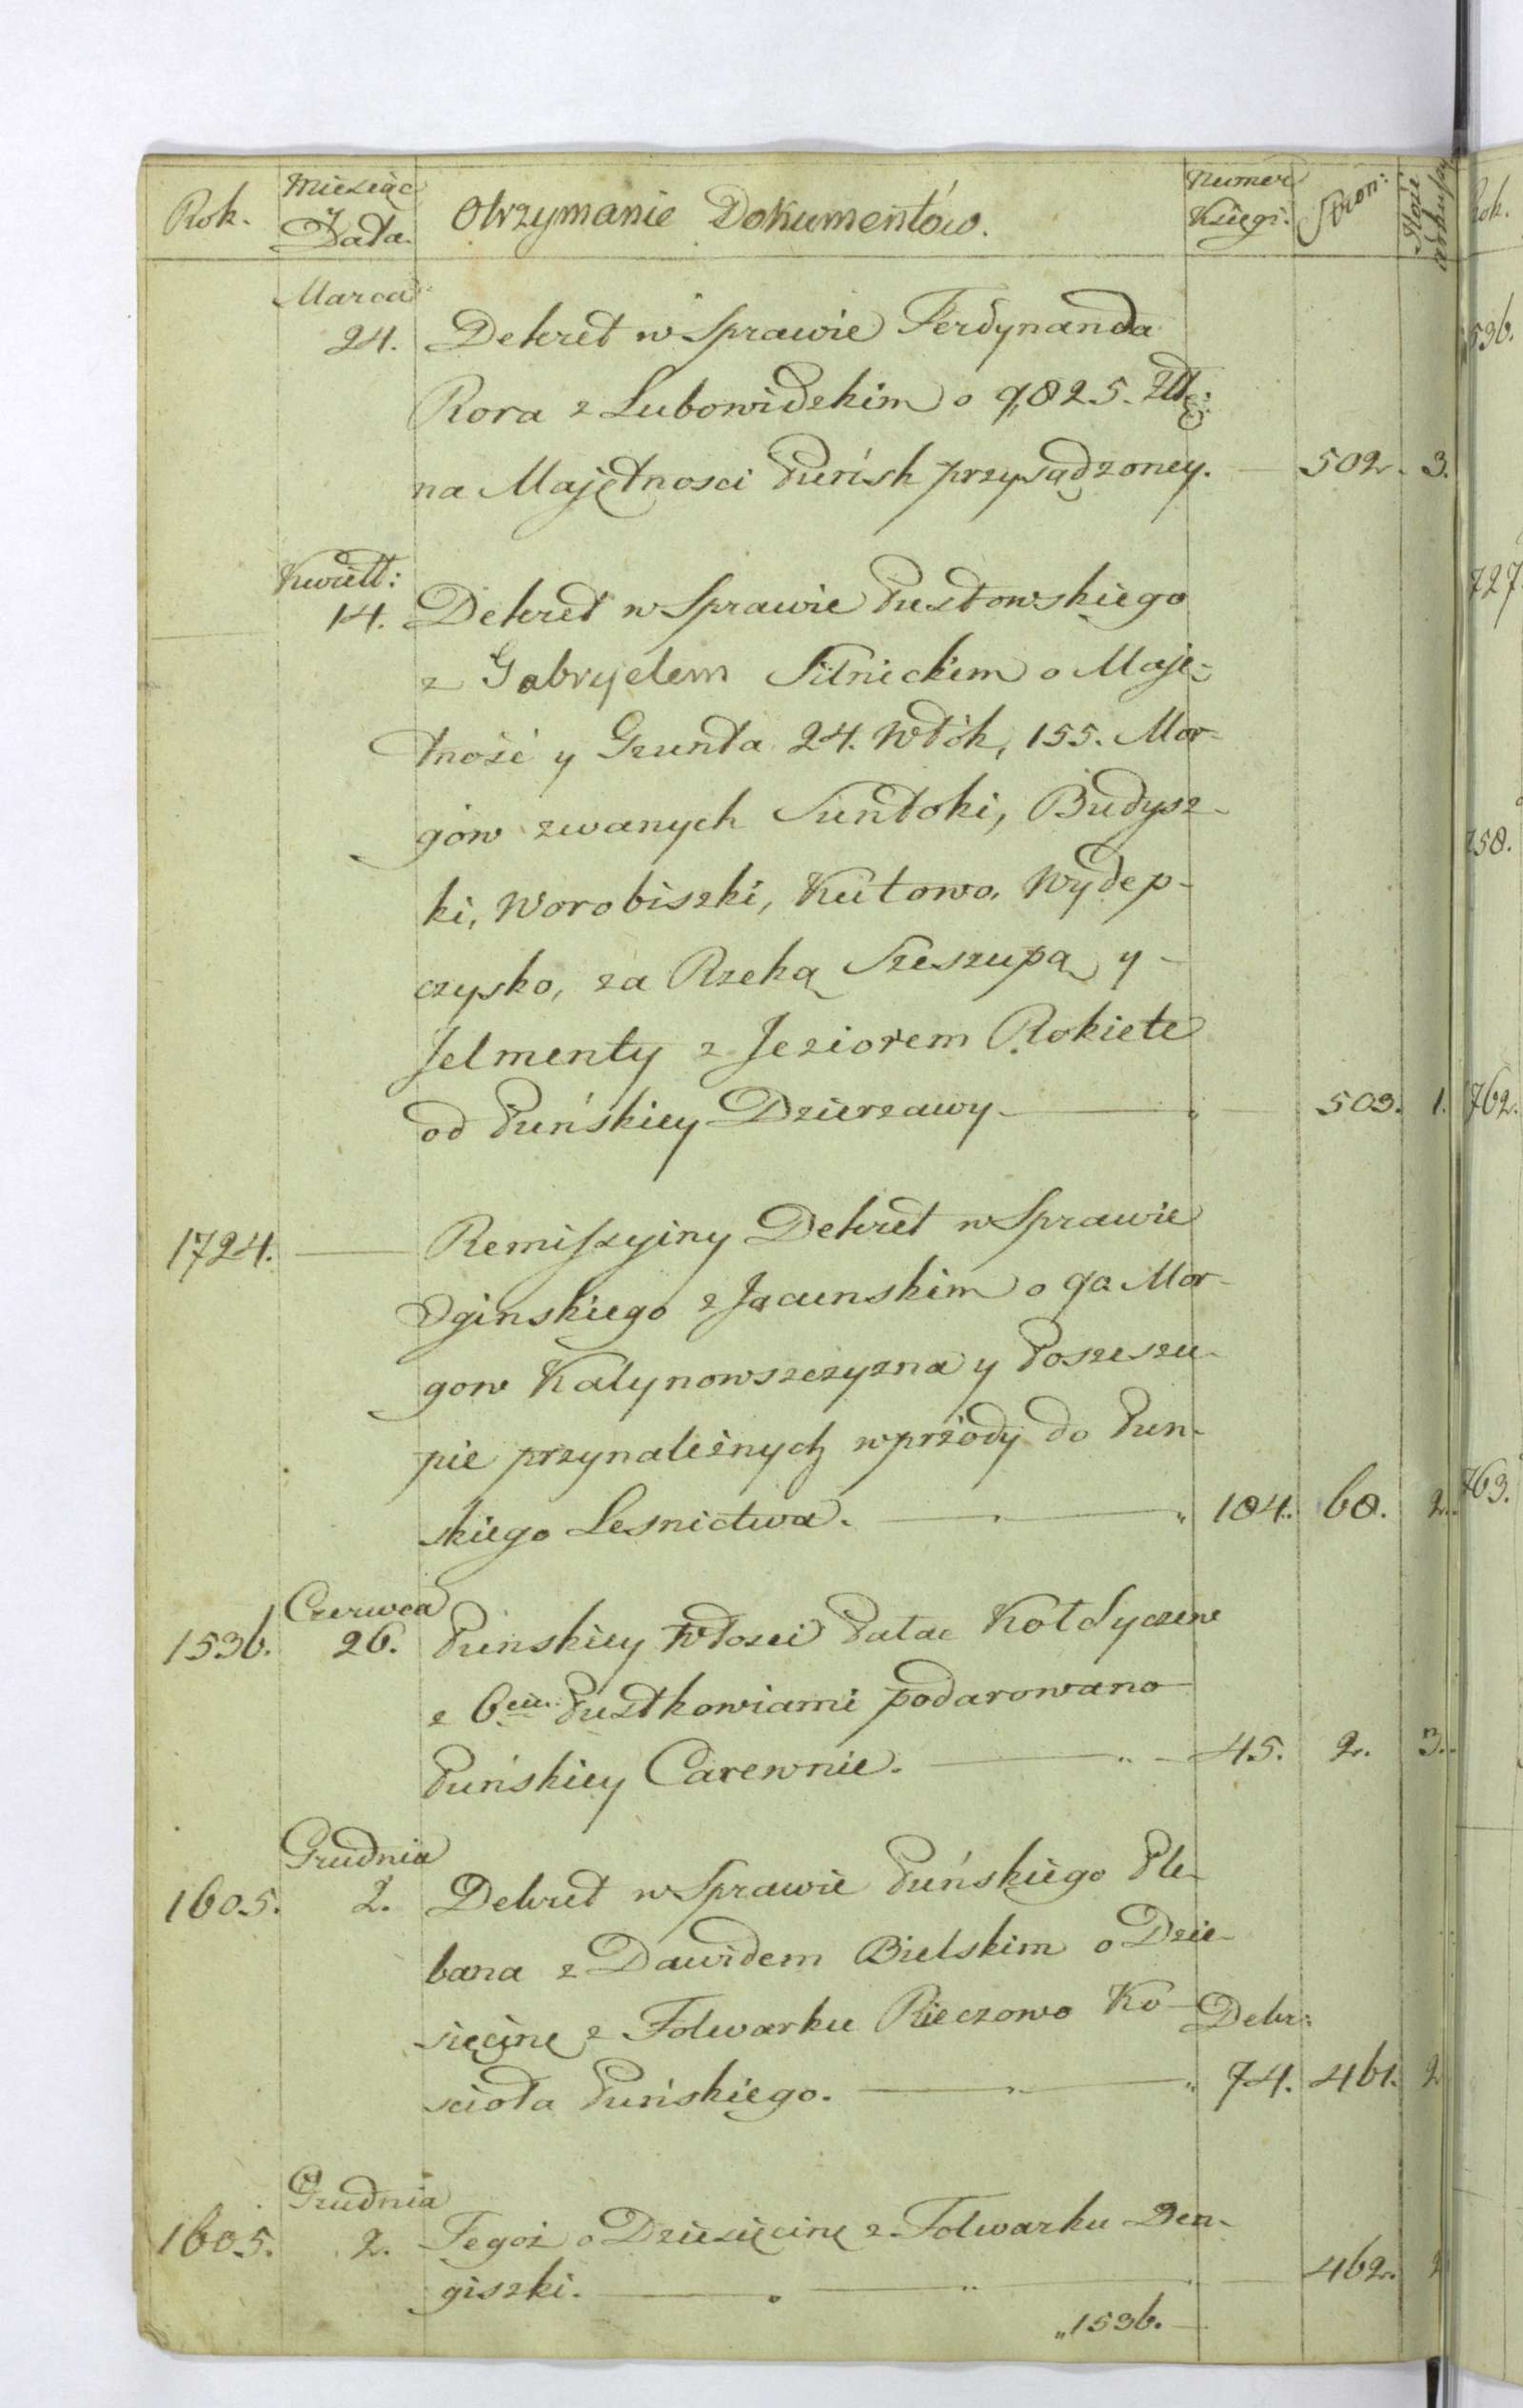 Rok. Miesiąc y Data. Otrzymanie Dokumentów. Numer Księgi. Stron: Ilość arkuszy
Marca
24. Dekret w Sprawie Ferdynanda
Rora z Lubowidzkim o 9,825. Złł:
na Majętnosci Puńsk przysądzoney. 502. 3.
Kwiett:
14. Dekret w Sprawie Pustowskiego
z Gabryelem Silnickim o Maję-
tność y Grunta 24. Włók, 155. Mor-
gow zwanych Suntoki, Budysz-
ki, Worobiszki, Kutowo, Wydep-
czysko, za Rzeką Szeszupą y
Jelmenty z Jeziorem Rokiete
od Puńskiey Dzierzawy 503. 1.
1724. Remissyiny Dekret w Sprawie
Oginskiego z Jacunskim o 90. Mor-
gow Kalynowszczyzna y Poszeszu-
pie przynależnych wprzody do Pun-
skiego Lesnictwa. 184. 68. 2.
Czerwca
1536. 26. Punskiey Włosci Pałac Kołdyczew
z 6ciu Pustkowiami podarowano
Puńskiey Carewnie. 45. 2. 3.
Grudnia
1605. 2. Dekret w Sprawie Puńskiego Ple-
bana z Dawidem Bielskim o Dzie-
sięcinę z Folwarku Rieczowo Ko- Dekr:
scioła Puńskiego. 74. 461. 2
Grudnia
1605. 2. Tegoż o Dziesięcinę z Folwarku Den-
giszki. 462. 2
1536.
Rok.
536.
727
758.
762.
763.